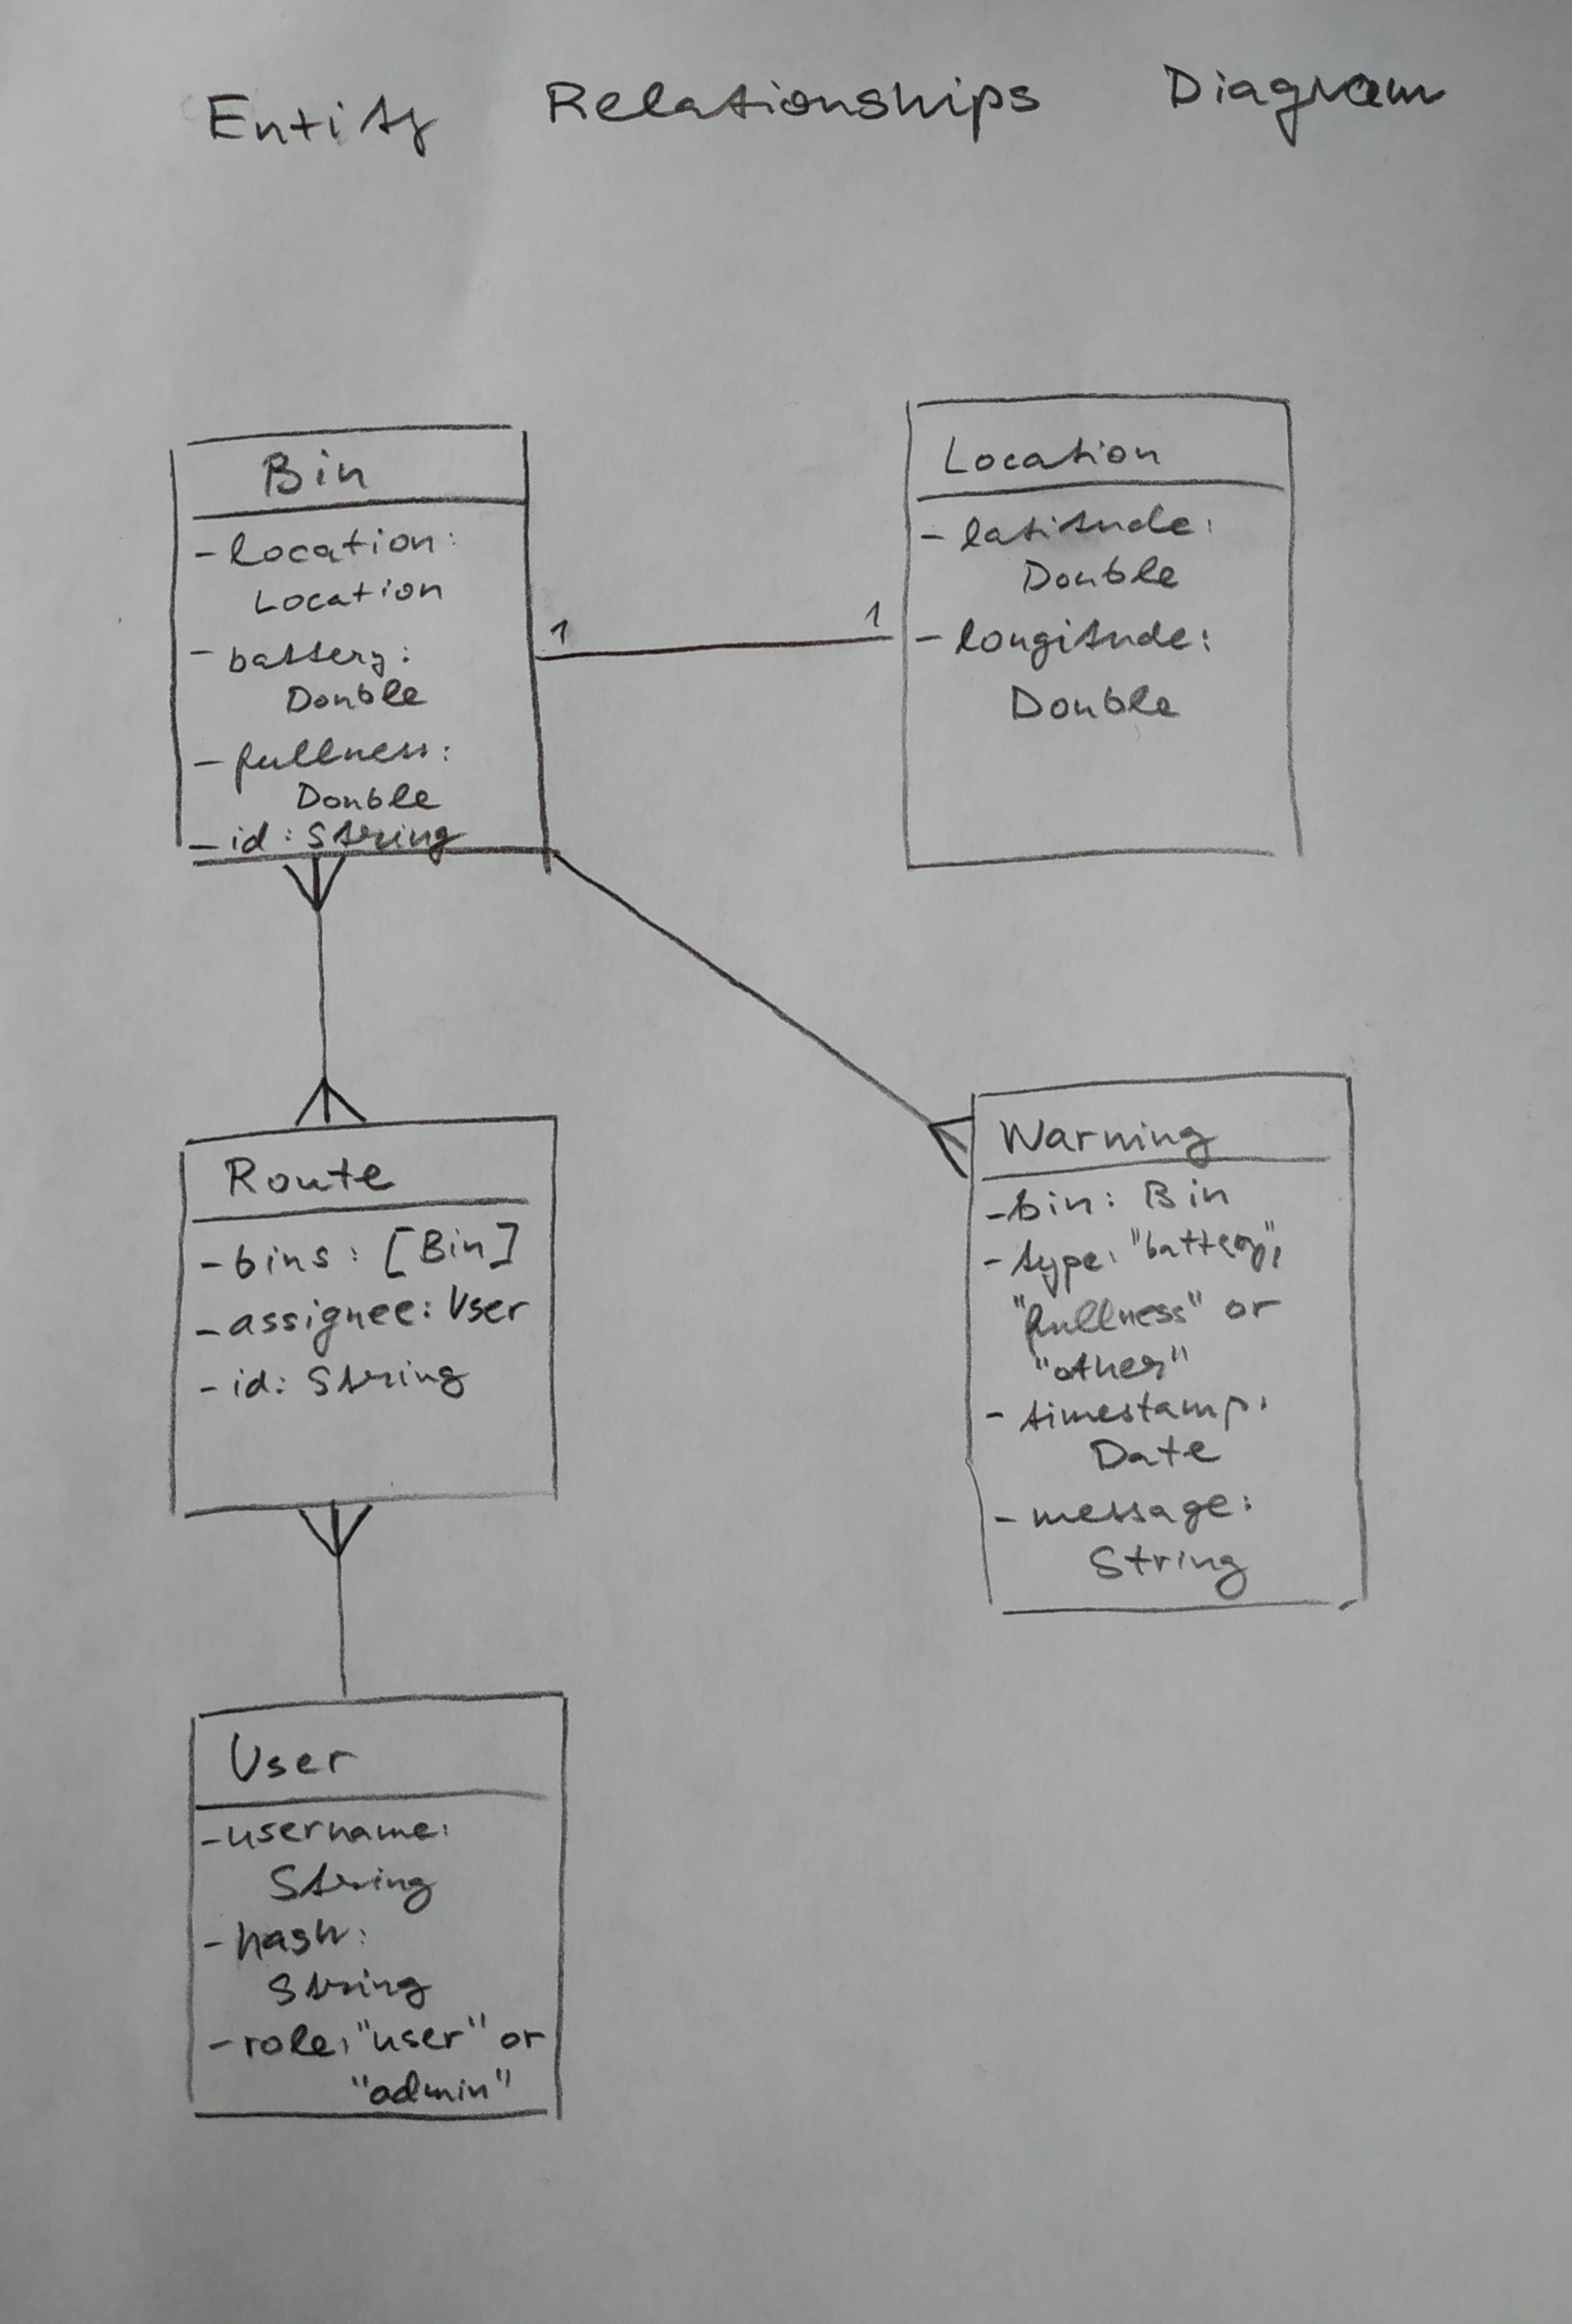 Entity Relationships Diagram
Bin
- location:
Location
- battery:
Double
- fullness:
Double
- id: String
1 1
Location
- latitude:
Double
- longitude:
Double
Route
- bins: [Bin]
- assignee: User
- id: String
Warning
- bin: Bin
- type: "battery",
"fullness" or
"other"
- timestamp:
Date
- message:
String
User
- username:
String
- hash:
String
- role: "user" or
"admin"